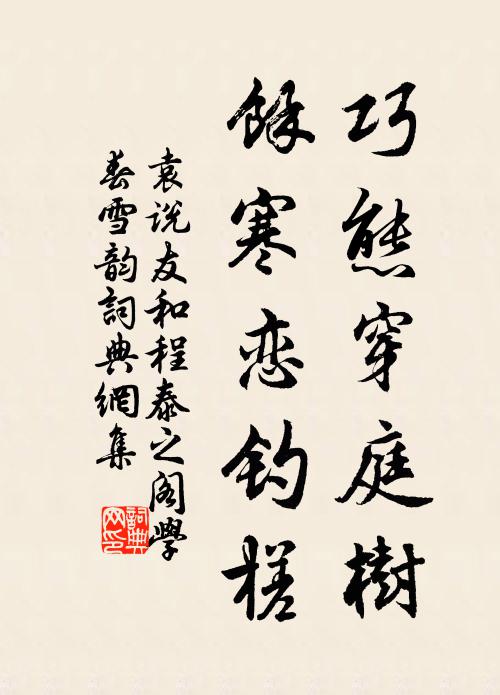 巧態穿庭樹
餘寒恋釣槎
袁説友和程泰之閣學
春雪韵詞典網集
詞典网印